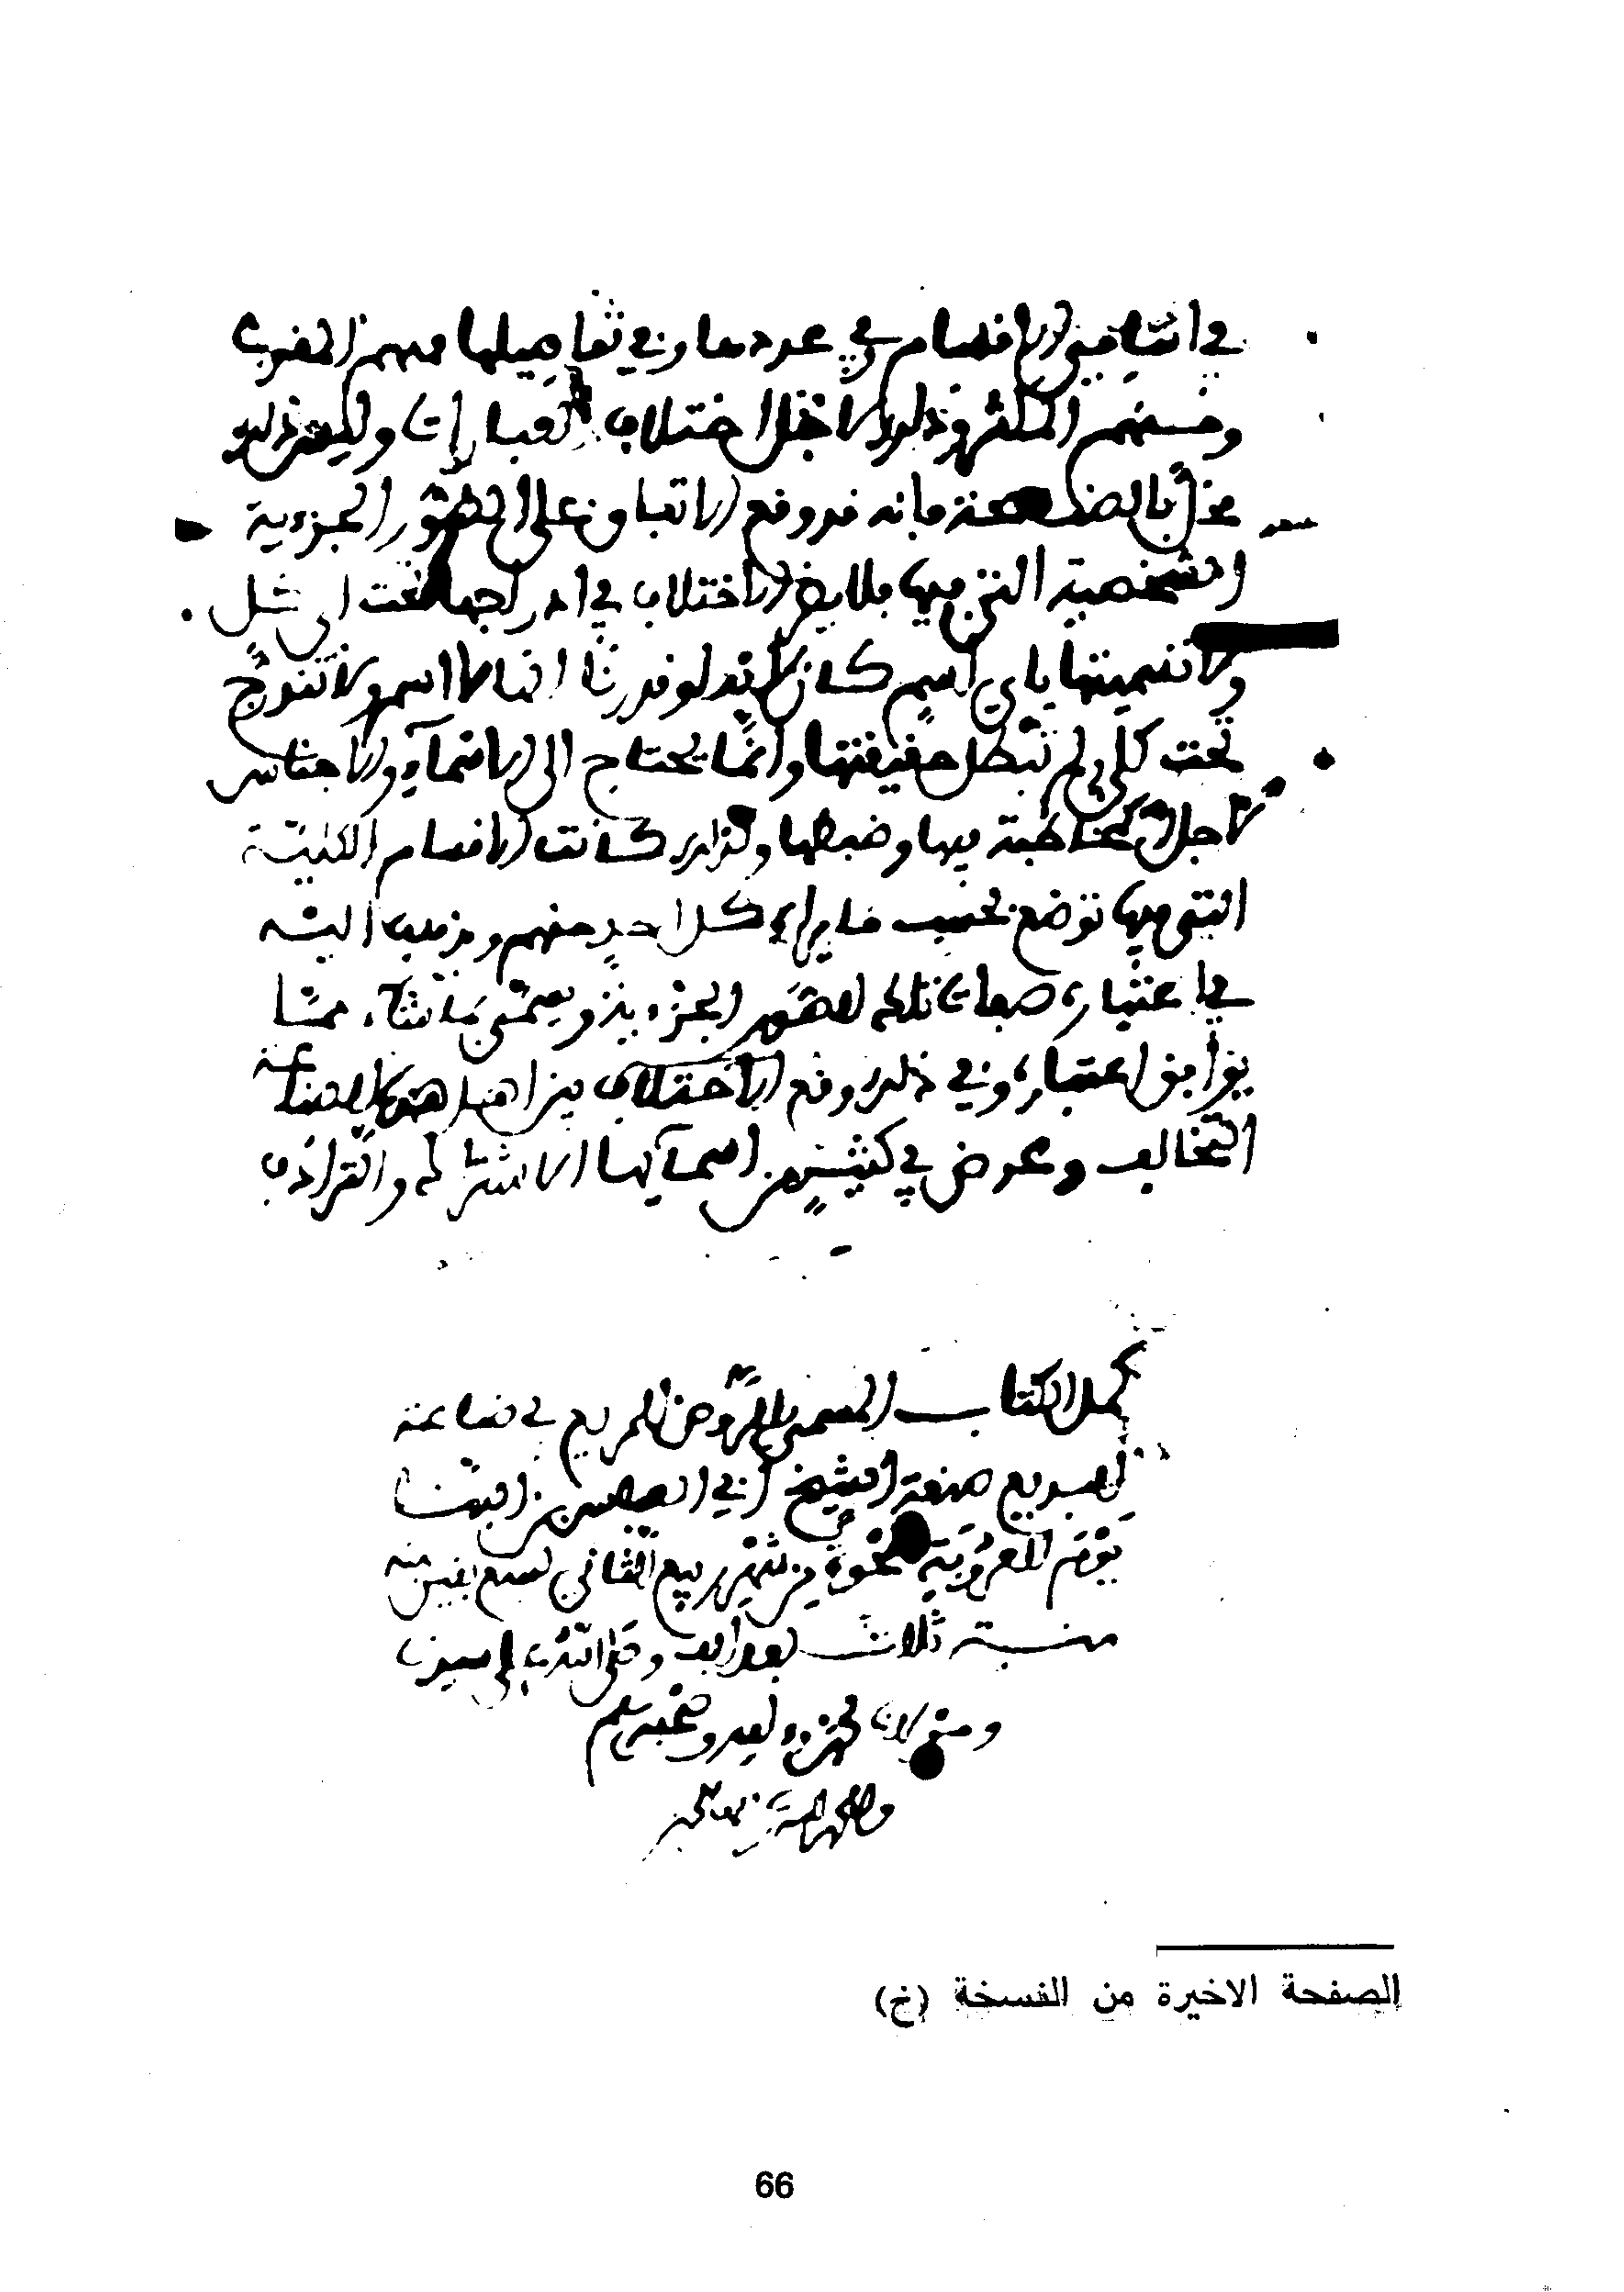 في اسامي الاقسام وفي عددها وفي تفاصيلها فمنهم المفرد
ومنهم المكثر وذلك لاجل اختلاف العبارات وليس ذلك
مخلا بالصنعة فانه قد وقع الاتفاق على الصور الجزءية
الشخصية التي فيها فلا يضر الاختلاف في ادراجها تحت اي شكل
ولا تسميتها باي اسم كان لانه لو قدرنا انها لا اسم ولا تندرج
تحت كلي لم تبطل حقيقتها وانما يحتاج الى الاسماء والاجناس
لاجل المخاطبة فيها وضبطها ولذلك كانت الاقسام الكلية
التي فيها توضع بحسب ما يراه كل احد منهم ويذهب اليه
في اعتباره صفات تلك الصور الجزءية ويسمى بما شاء مما
يوافق اعتباره وفي ذلك وقع الاختلاف بين اهل هذه الصناعة
التخالف وعرض في كثير من اسمآيها الاشتراك والترادف
كمل الكتاب المسمى بالروض المريع في صناعة
البديع صنعة الشيخ ابي العباس بن البنا
يوم العروبة ضحوة من شهر ربيع الثاني لسبع بقين منه
سنة ثلاث بعد الف وصلى الله على سيدنا
ومولانا محمد وءاله وصحبه وسلم
الصفحة الاخيرة من النسخة (خ)
66